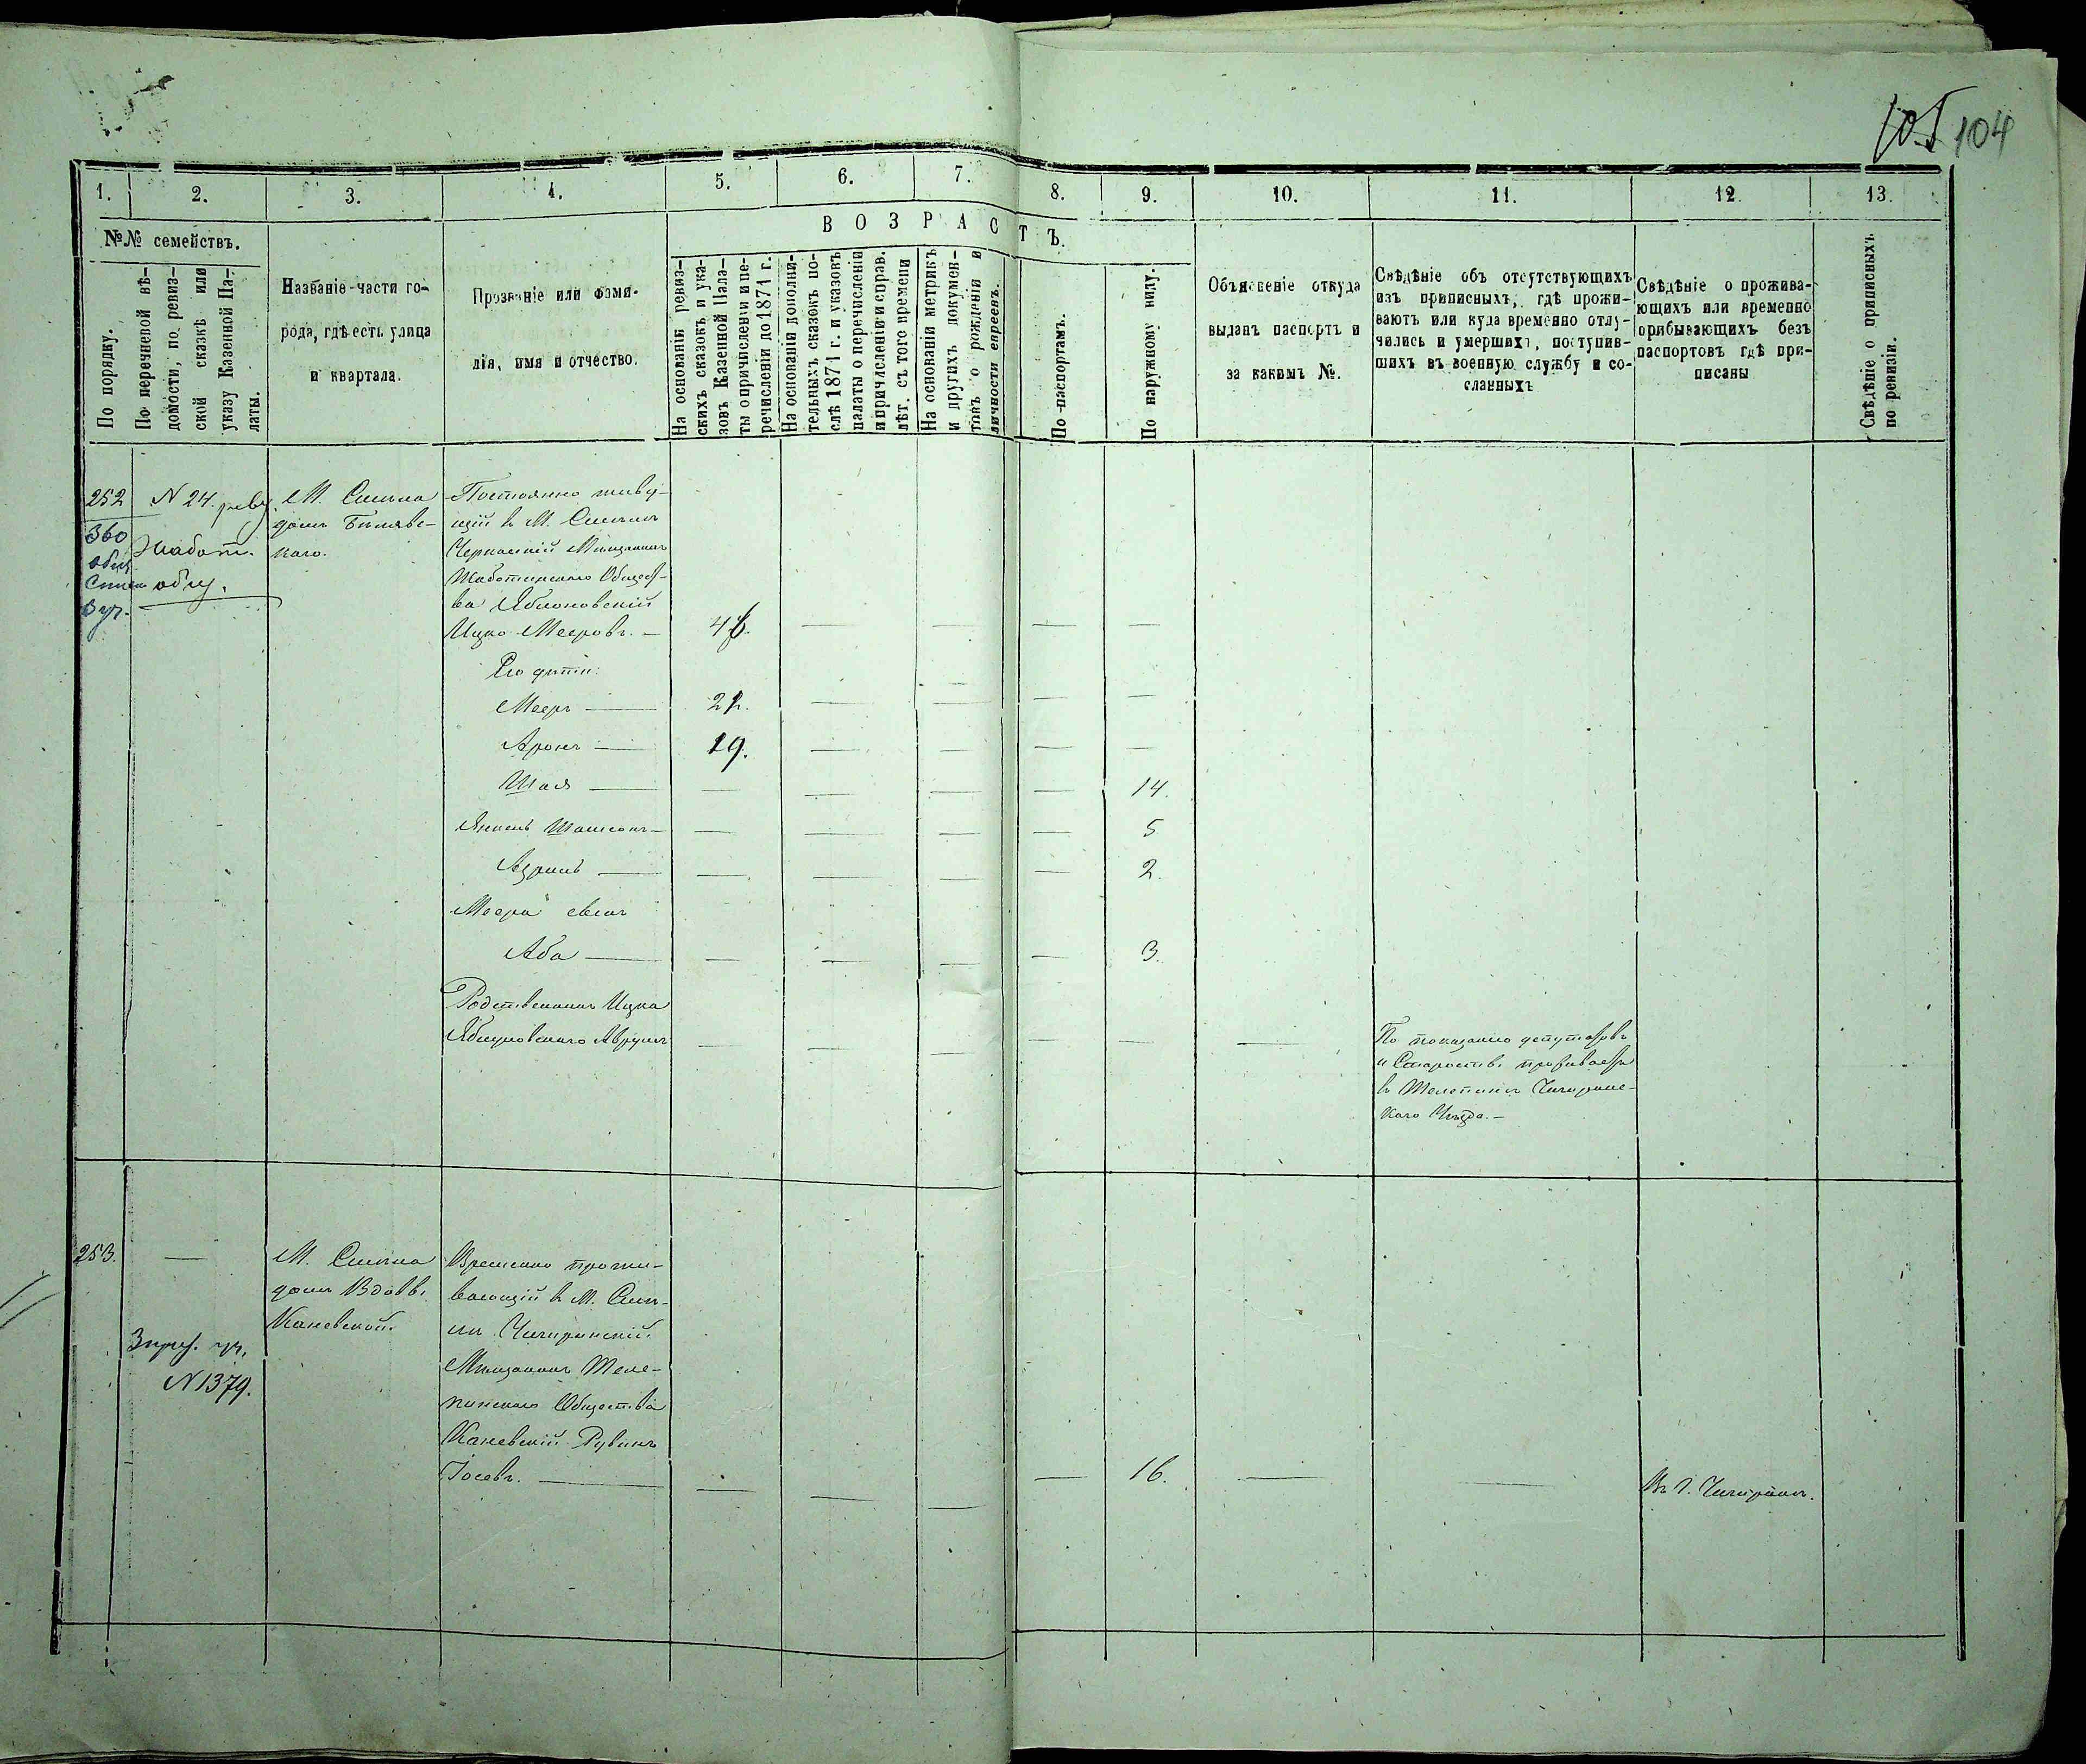 104
1. 2. 3. 4. 5. 6. 7. 8. 9. 10. 11. 12. 13.
№№ семействъ.
В О З Р А С Т Ъ.
По порядку.
По перечневой вѣ-
домости, по ревиз-
ской сказкѣ или
указу Казенной Па-
латы.
Названіе части го-
рода, гдѣ есть улица
и квартала.
Прозваніе или фами-
лія, имя и отчество.
На основаніи ревиз-
скихъ сказокъ и ука-
зовъ Казенной Пала-
ты о причисленіи и пе-
речисленіи до 1871 г.
На основаніи дополни-
тельныхъ сказокъ по-
слѣ 1871 г. и указовъ
палаты о перечисленіи
и причисленіи и справ.
лѣт. съ того времени
На основаніи метрикъ
и другихъ докумен-
товъ о рожденіи и
личности евреевъ.
По паспортамъ.
По наружному виду.
Объясненіе откуда
выданъ паспортъ и
за какимъ №.
Свѣдѣніе объ отсутствующихъ
изъ приписныхъ, гдѣ прожи-
ваютъ или куда временно отлу-
чились и умершихъ, поступив-
шихъ въ военную службу и со-
сланныхъ
Свѣдѣніе о прожива-
ющихъ или временно
прибывающихъ безъ
паспортовъ гдѣ при-
писаны
Свѣдѣніе о приписныхъ
по ревизіи.
252
360
N 24.
общ.
М. Смѣла
домъ Бѣлявс-
каго.
Постоянно живу-
щій въ М. Смѣлѣ
Черкасскій Мѣщанинъ
Жаботинскаго Общест-
ва Яблоновскій
Ицко Мееровъ. —
Его дѣти:
Мееръ — 22.
Аронъ — 19.
Шая — 14.
Янкель Шимсонъ — 5
Азриль — 2.
Меера сынъ
Аба — 3.
Родственникъ Ицка
Яблуновскаго Аврумъ
По показанію депутатовъ
и Старостъ проживаетъ
въ Телепинѣ Чигиринс-
каго Уѣзда. —
253.
N 1379.
М. Смѣла
домъ Вдовы
Каневской.
Временно прожи-
вающій въ М. Смѣ-
лѣ Чигиринскій
Мѣщанинъ Теле-
пинскаго Общества
Каневскій Рувинъ
Іосевъ. — 16.
Въ Г. Чигиринѣ.